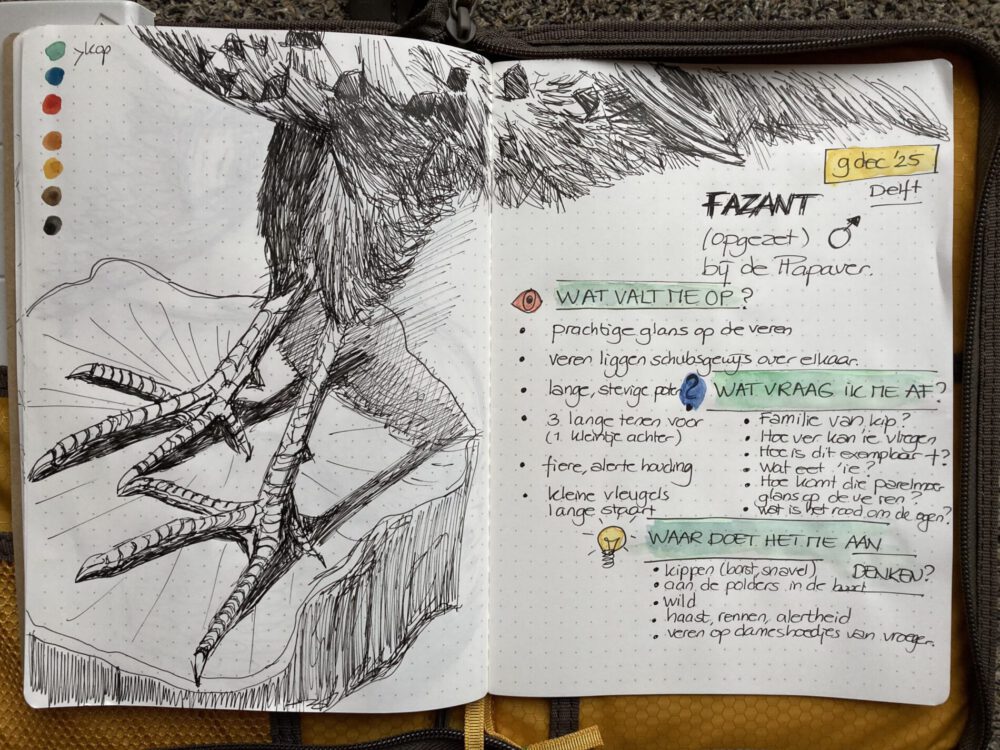 kop
9 dec '25
Delft
FAZANT
(opgezet) ♂
bij de Papaver.
WAT VALT ME OP?
• prachtige glans op de veren
• veren liggen schubsgewijs over elkaar.
• lange, stevige poten
• 3 lange tenen voor
(1 kleintje achter)
• fiere, alerte houding
• kleine vleugels
lange staart
? WAT VRAAG IK ME AF?
• Familie van kip?
• Hoe ver kan ie vliegen
• Hoe is dit exemplaar †?
• wat eet 'ie?
• Hoe komt die parelmoer
glans op de veren?
• wat is het rood om de ogen?
WAAR DOET HET ME AAN
DENKEN?
• kippen (borst, snavel)
• aan de polders in de buurt
• wild
• haast, rennen, alertheid
• veren op dameshoedjes van vroeger.